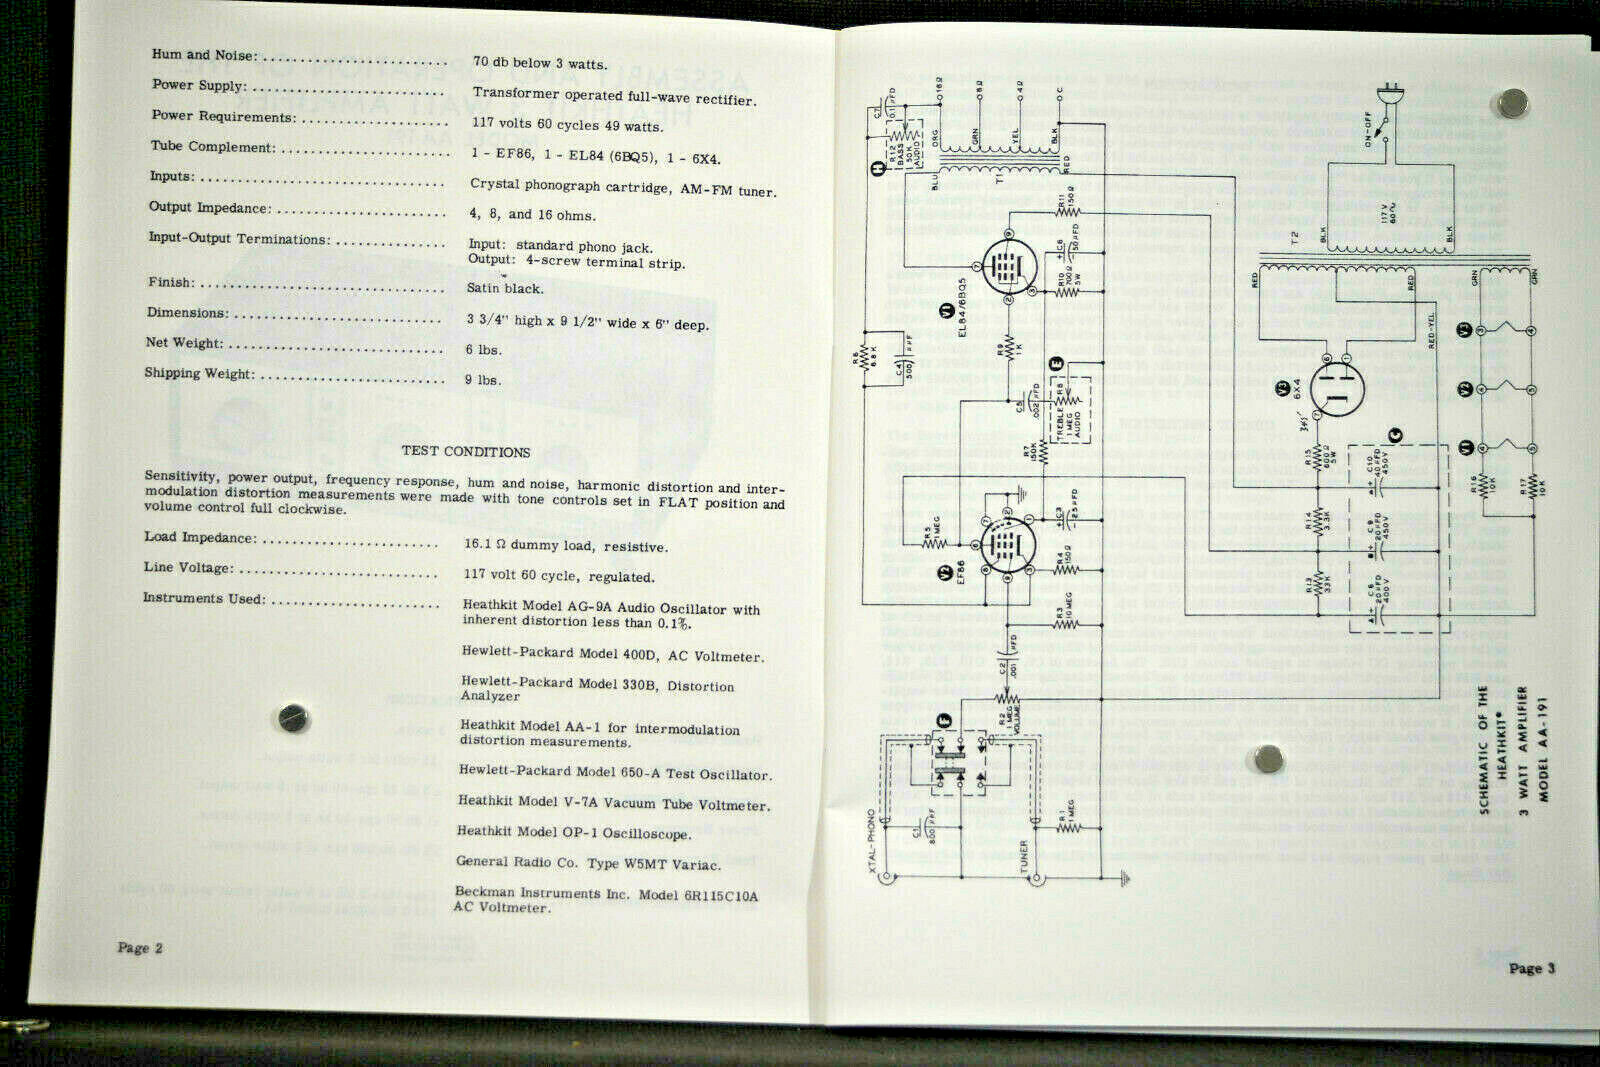 Hum and Noise: ........................ 70 db below 3 watts.
Power Supply: ......................... Transformer operated full-wave rectifier.
Power Requirements: ................... 117 volts 60 cycles 49 watts.
Tube Complement: ...................... 1 - EF86, 1 - EL84 (6BQ5), 1 - 6X4.
Inputs: ............................... Crystal phonograph cartridge, AM-FM tuner.
Output Impedance: ..................... 4, 8, and 16 ohms.
Input-Output Terminations: ............ Input: standard phono jack.
Output: 4-screw terminal strip.
Finish: ............................... Satin black.
Dimensions: ........................... 3 3/4" high x 9 1/2" wide x 6" deep.
Net Weight: ........................... 6 lbs.
Shipping Weight: ...................... 9 lbs.
TEST CONDITIONS
Sensitivity, power output, frequency response, hum and noise, harmonic distortion and inter-
modulation distortion measurements were made with tone controls set in FLAT position and
volume control full clockwise.
Load Impedance: ....................... 16.1 Ω dummy load, resistive.
Line Voltage: ......................... 117 volt 60 cycle, regulated.
Instruments Used: ..................... Heathkit Model AG-9A Audio Oscillator with
inherent distortion less than 0.1%.
Hewlett-Packard Model 400D, AC Voltmeter.
Hewlett-Packard Model 330B, Distortion
Analyzer
Heathkit Model AA-1 for intermodulation
distortion measurements.
Hewlett-Packard Model 650-A Test Oscillator.
Heathkit Model V-7A Vacuum Tube Voltmeter.
Heathkit Model OP-1 Oscilloscope.
General Radio Co. Type W5MT Variac.
Beckman Instruments Inc. Model 6R115C10A
AC Voltmeter.
Page 2
SCHEMATIC OF THE
HEATHKIT®
3 WATT AMPLIFIER
MODEL AA-191
XTAL-PHONO
TUNER
C1
800 µµF
R1
1 MEG
F
R2
1 MEG
VOLUME
C2
.001
µFD
R3
10 MEG
V2
EF86
R4
150Ω
C3
2.5 µFD
R5
1 MEG
R6
6.8K
C4
500
µµF
R7
150K
C5
.002
µFD
E
TREBLE R8
1 MEG
AUDIO
R9
1K
V1
EL84/6BQ5
R10
5W
C6
50µFD
R11
150Ω
H
R12
BASS
50K
AUDIO
C7
0.1 µFD
T1
BLU
RED
ORG
GRN
YEL
BLK
16Ω
8Ω
4Ω
C
ON-OFF
117V
60~
BLK
BLK
T2
RED
RED
RED-YEL
GRN
GRN
V3
6X4
345
R15
600Ω
5W
R14
3.3K
R13
33K
G
C10
40µFD
450V
C9
20µFD
450V
20µFD
400V
V3
V2
V1
R16
10K
R17
10K
Page 3